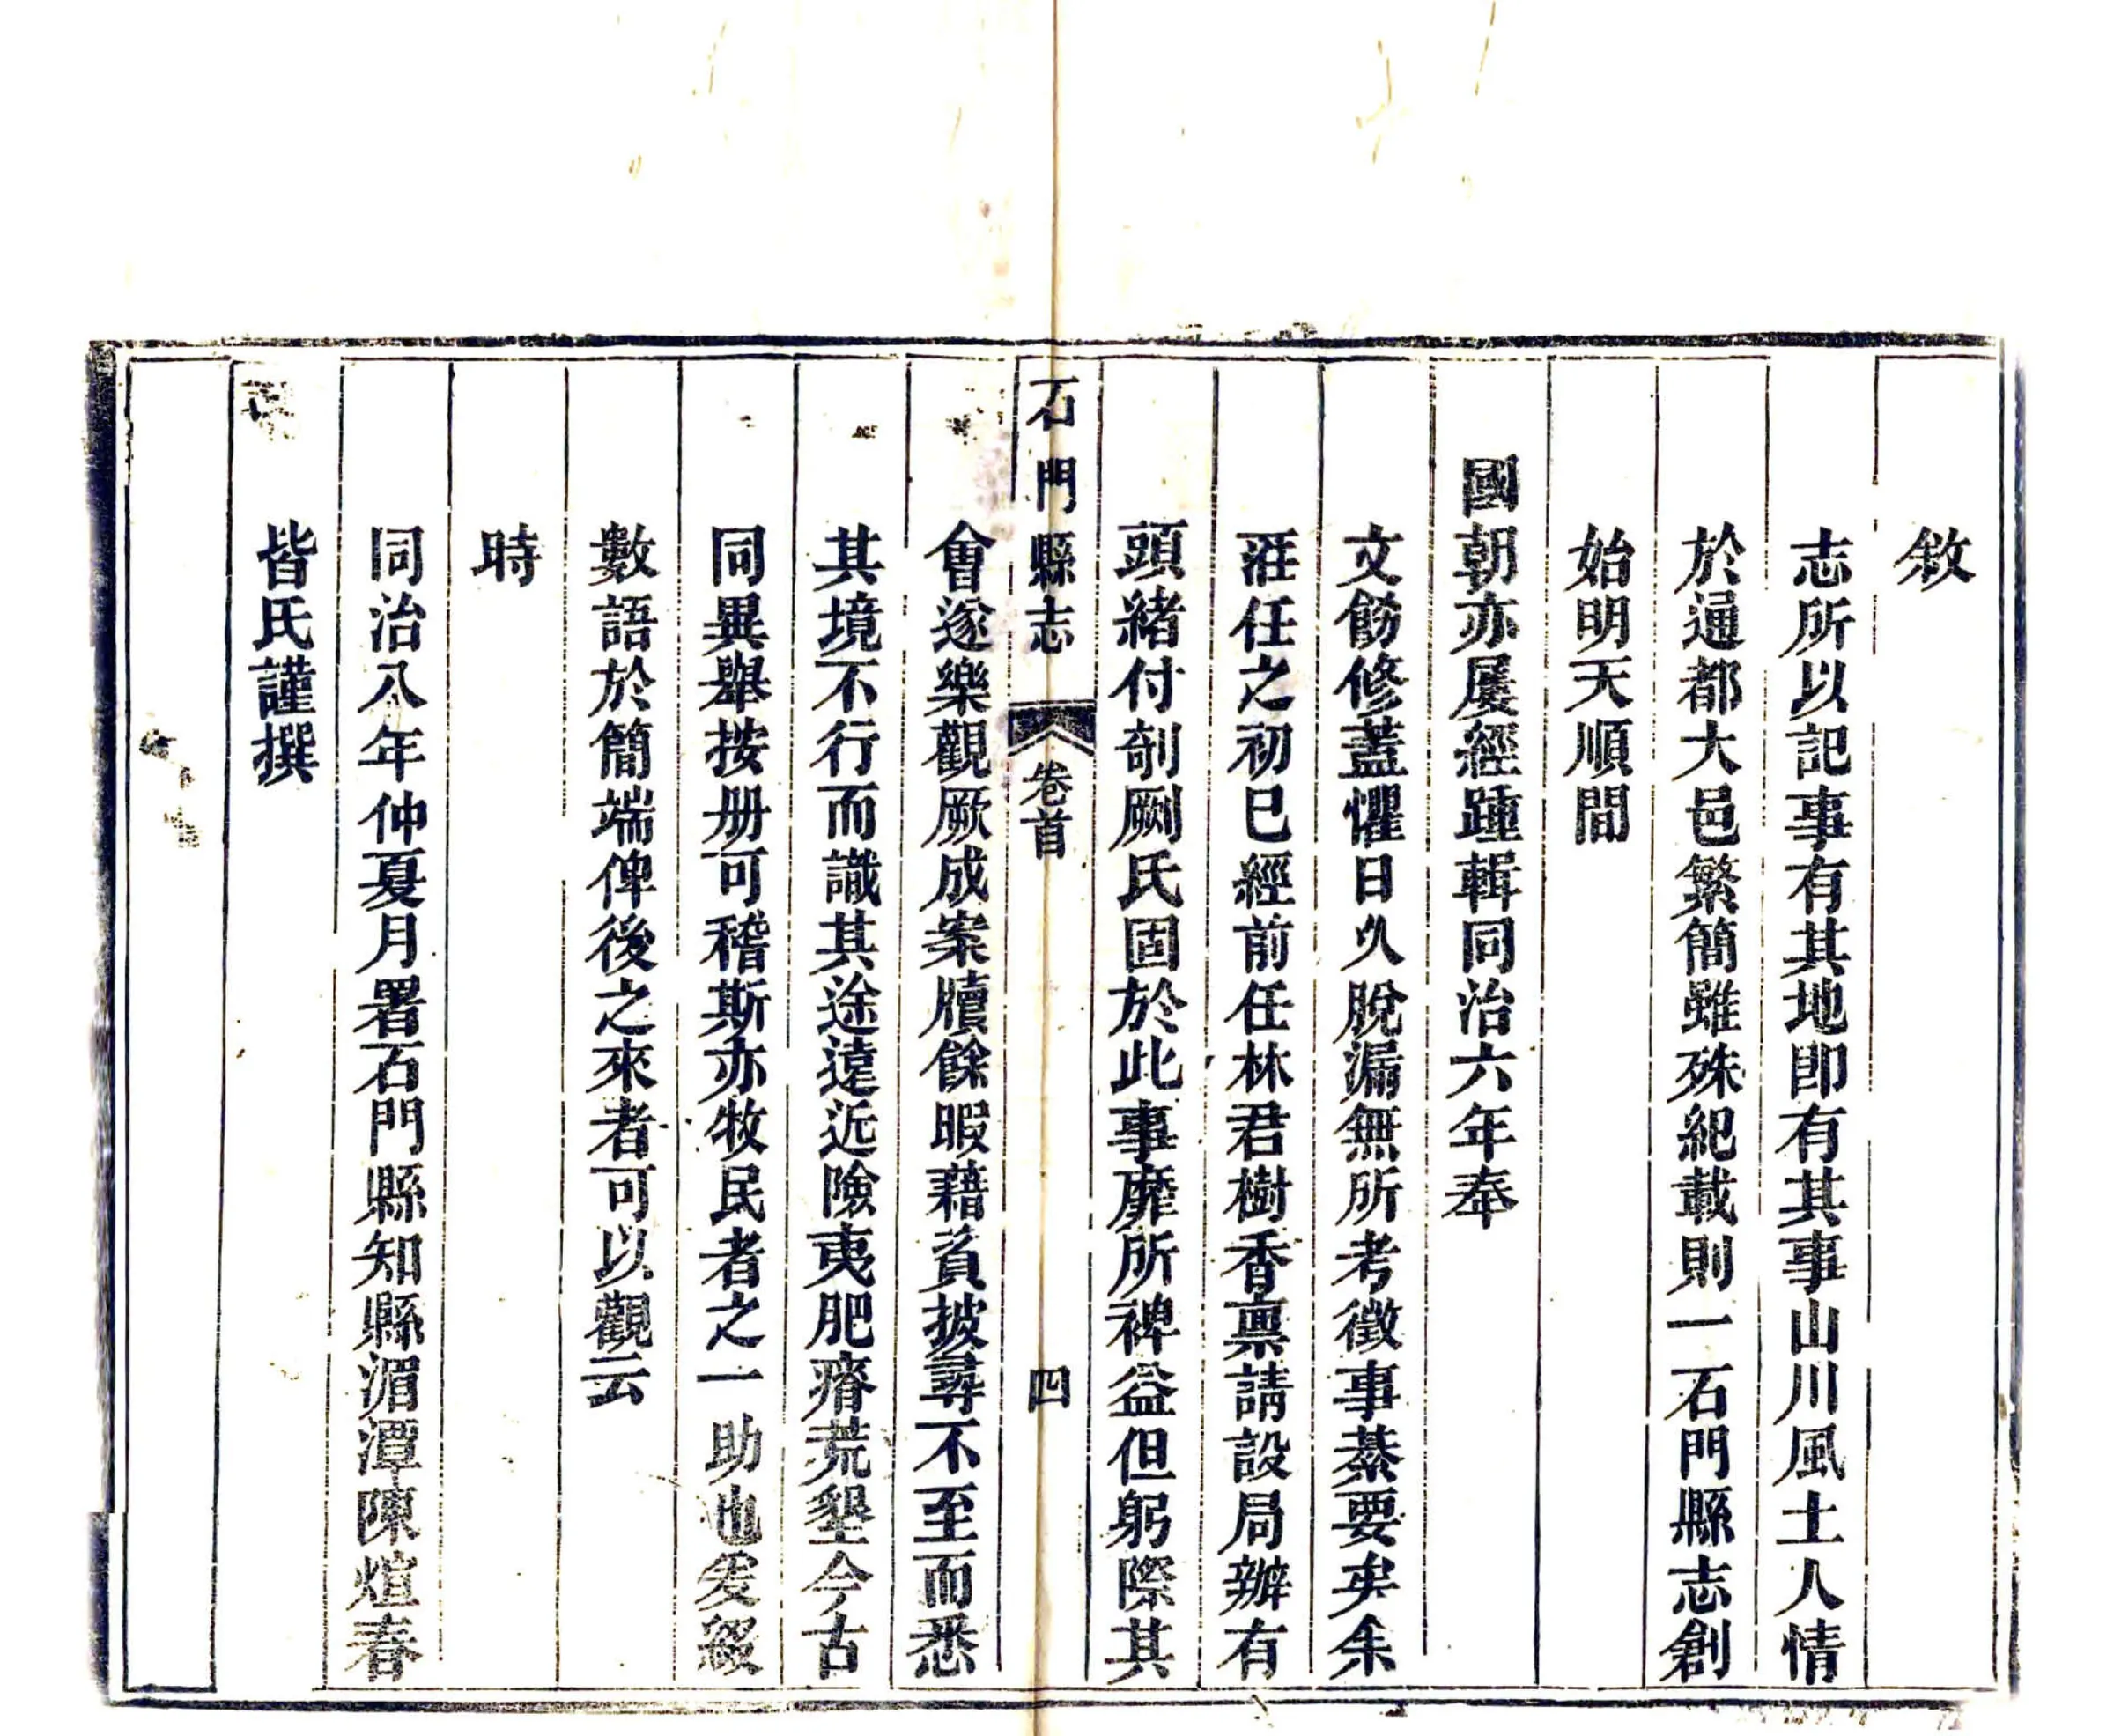 敘
志所以記事有其地即有其事山川風土人情
於通都大邑繁簡雖殊紀載則一石門縣志創
始明天順間
國朝亦屡經踵輯同治六年奉
文飭修葢懼日久脫漏無所考徵事綦要矣余
涖任之初巳經前任林君樹香禀請設局辦有
頭緒付剞劂氏固於此事靡所裨益但躬際其
石門縣志 卷首 四
會遂樂觀厥成案牘餘暇藉資披尋不至而悉
其境不行而識其途遠近險夷肥瘠荒墾今古
同異舉按册可稽斯亦牧民者之一助也爰綴
數語於簡端俾後之來者可以觀云
時
同治八年仲夏月署石門縣知縣湄潭陳煊春
皆氏謹撰